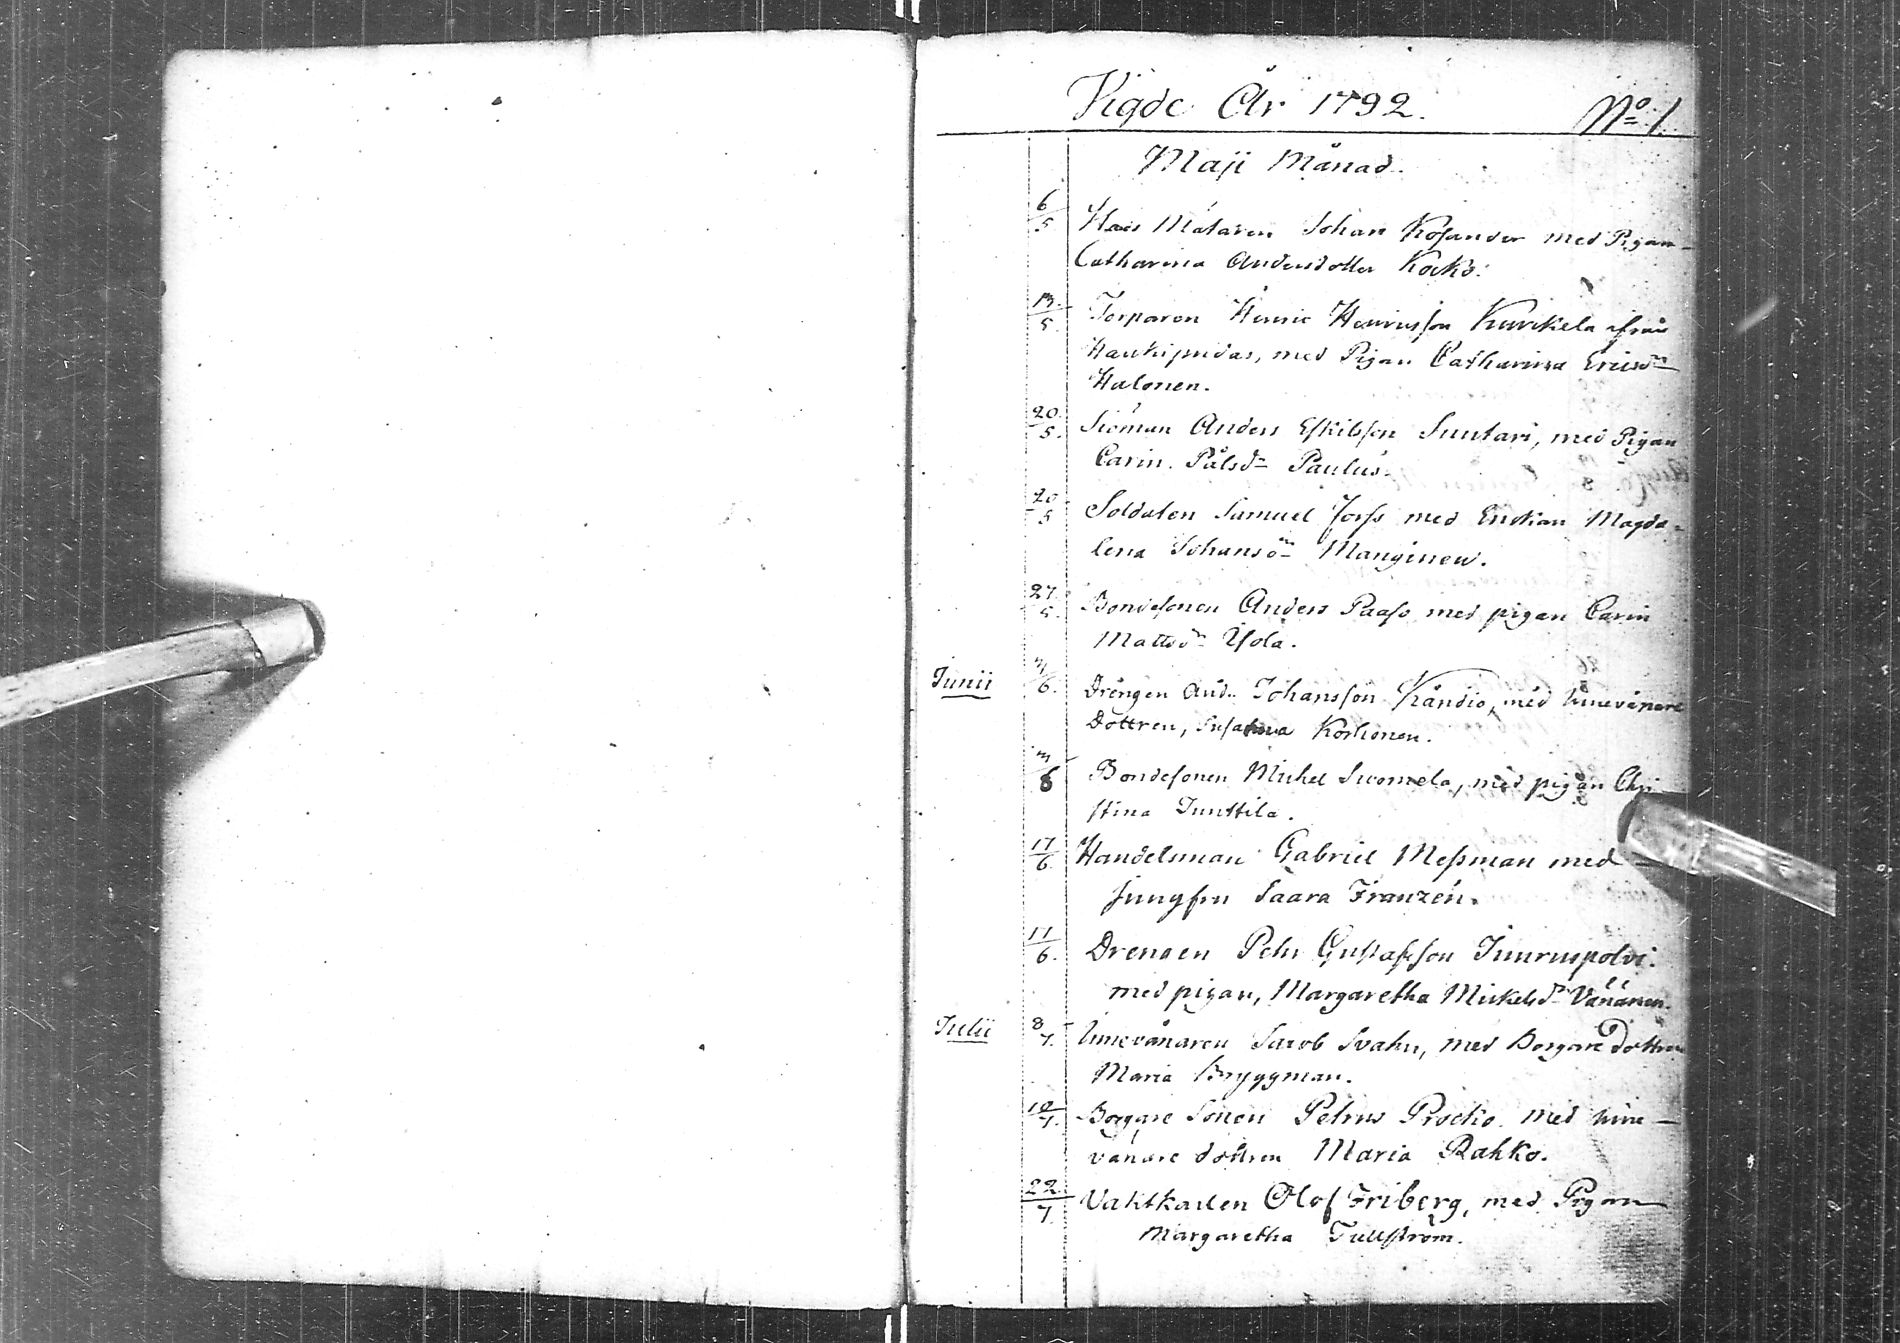 Vigde År 1792.
No: 1
Maji Månad.
6/5 Johan Kosander med Pigan
Catharina Andersdotter Kocko.
13/5. Torparen Henric Henricsson Kurckela ifrån
Haukipudas, med Pigan Catharina Ericsdr
Halonen.
20/5. Siöman Anders Eskilsson Suutari, med Pigan
Carin Pålsdr Paulus.
20/5 Soldaten Samuel Forss med Enckan Magda-
lena Johansdr Manginen.
27/5. Bondesonen Anders Paaso med pigan Carin
Mattsdr Ysola.
Junii /6. Drängen And: Johansson Kåndio, med Innevånare
Dottren, Susanna Korhonen.
/6 Bondesonen Michel Suomela, med pigan Chri
stina Junttila.
17/6. Handelsman Gabriel Messman med
Jungfru Saara Franzén.
17/6. Drengen Pehr Gustafsson
med pigan, Margaretha Mickelsdr Vänänen.
Julii 8/7. Innevånaren Jacob Svahn, med Borgare Dottren
Maria Bryggman.
10/7. Borgare Sonen Petrus Procko med inne-
vånare dottren Maria Rahko.
22/7 Vaktkarlen Olof Friberg, med Pigan
Margaretha Tullström.